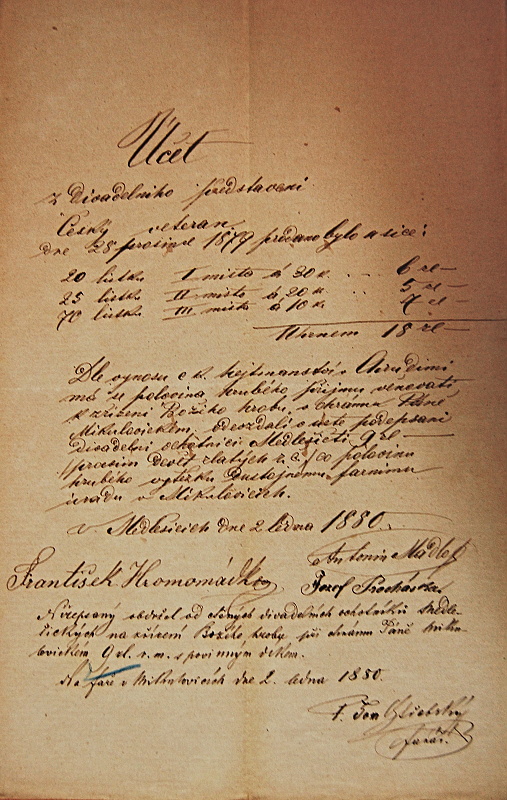 Účet
z Divadelního představení
Český veteran
dne 28 prosince 1879 prodáno bylo a sice:
20 lístků I místo á 30 k. . . . . 6 zl —
25 lístků II místo á 20 k. . . . 5 zl —
70 lístků III místo á 10 k. . . . 7 zl —
Uhrnem 18 zl —
Dle vynosu c. k. hejtmanství v Chrudimi
má se polovina hrubého příjmu věnovati
k zřízení Božího hrobu, v chrámu Páně
Mikulovickém, odevzdali v úctě podepsaní
divadelní ochotníci Medlešičtí 9 zl —
/:prosím devět zlatých r. č.:/ co polovinu
hrubého výtěžku Dustojnému farnímu
úřadu v Mikulovicích.
v Medlešicích dne 2 ledna 1880.
Antonín Mádle
František Hromomádko
Jozef Procházka
Nížepsaný obdržel od ctěných divadelních ochotníků Medle-
šických na zřízení Božího hrobu při chrámu Páně Miku-
lovickém 9 zl. r. m. s povinným díkem.
Na faře v Mikulovicích dne 2. ledna 1880.
P. Jan
farář.